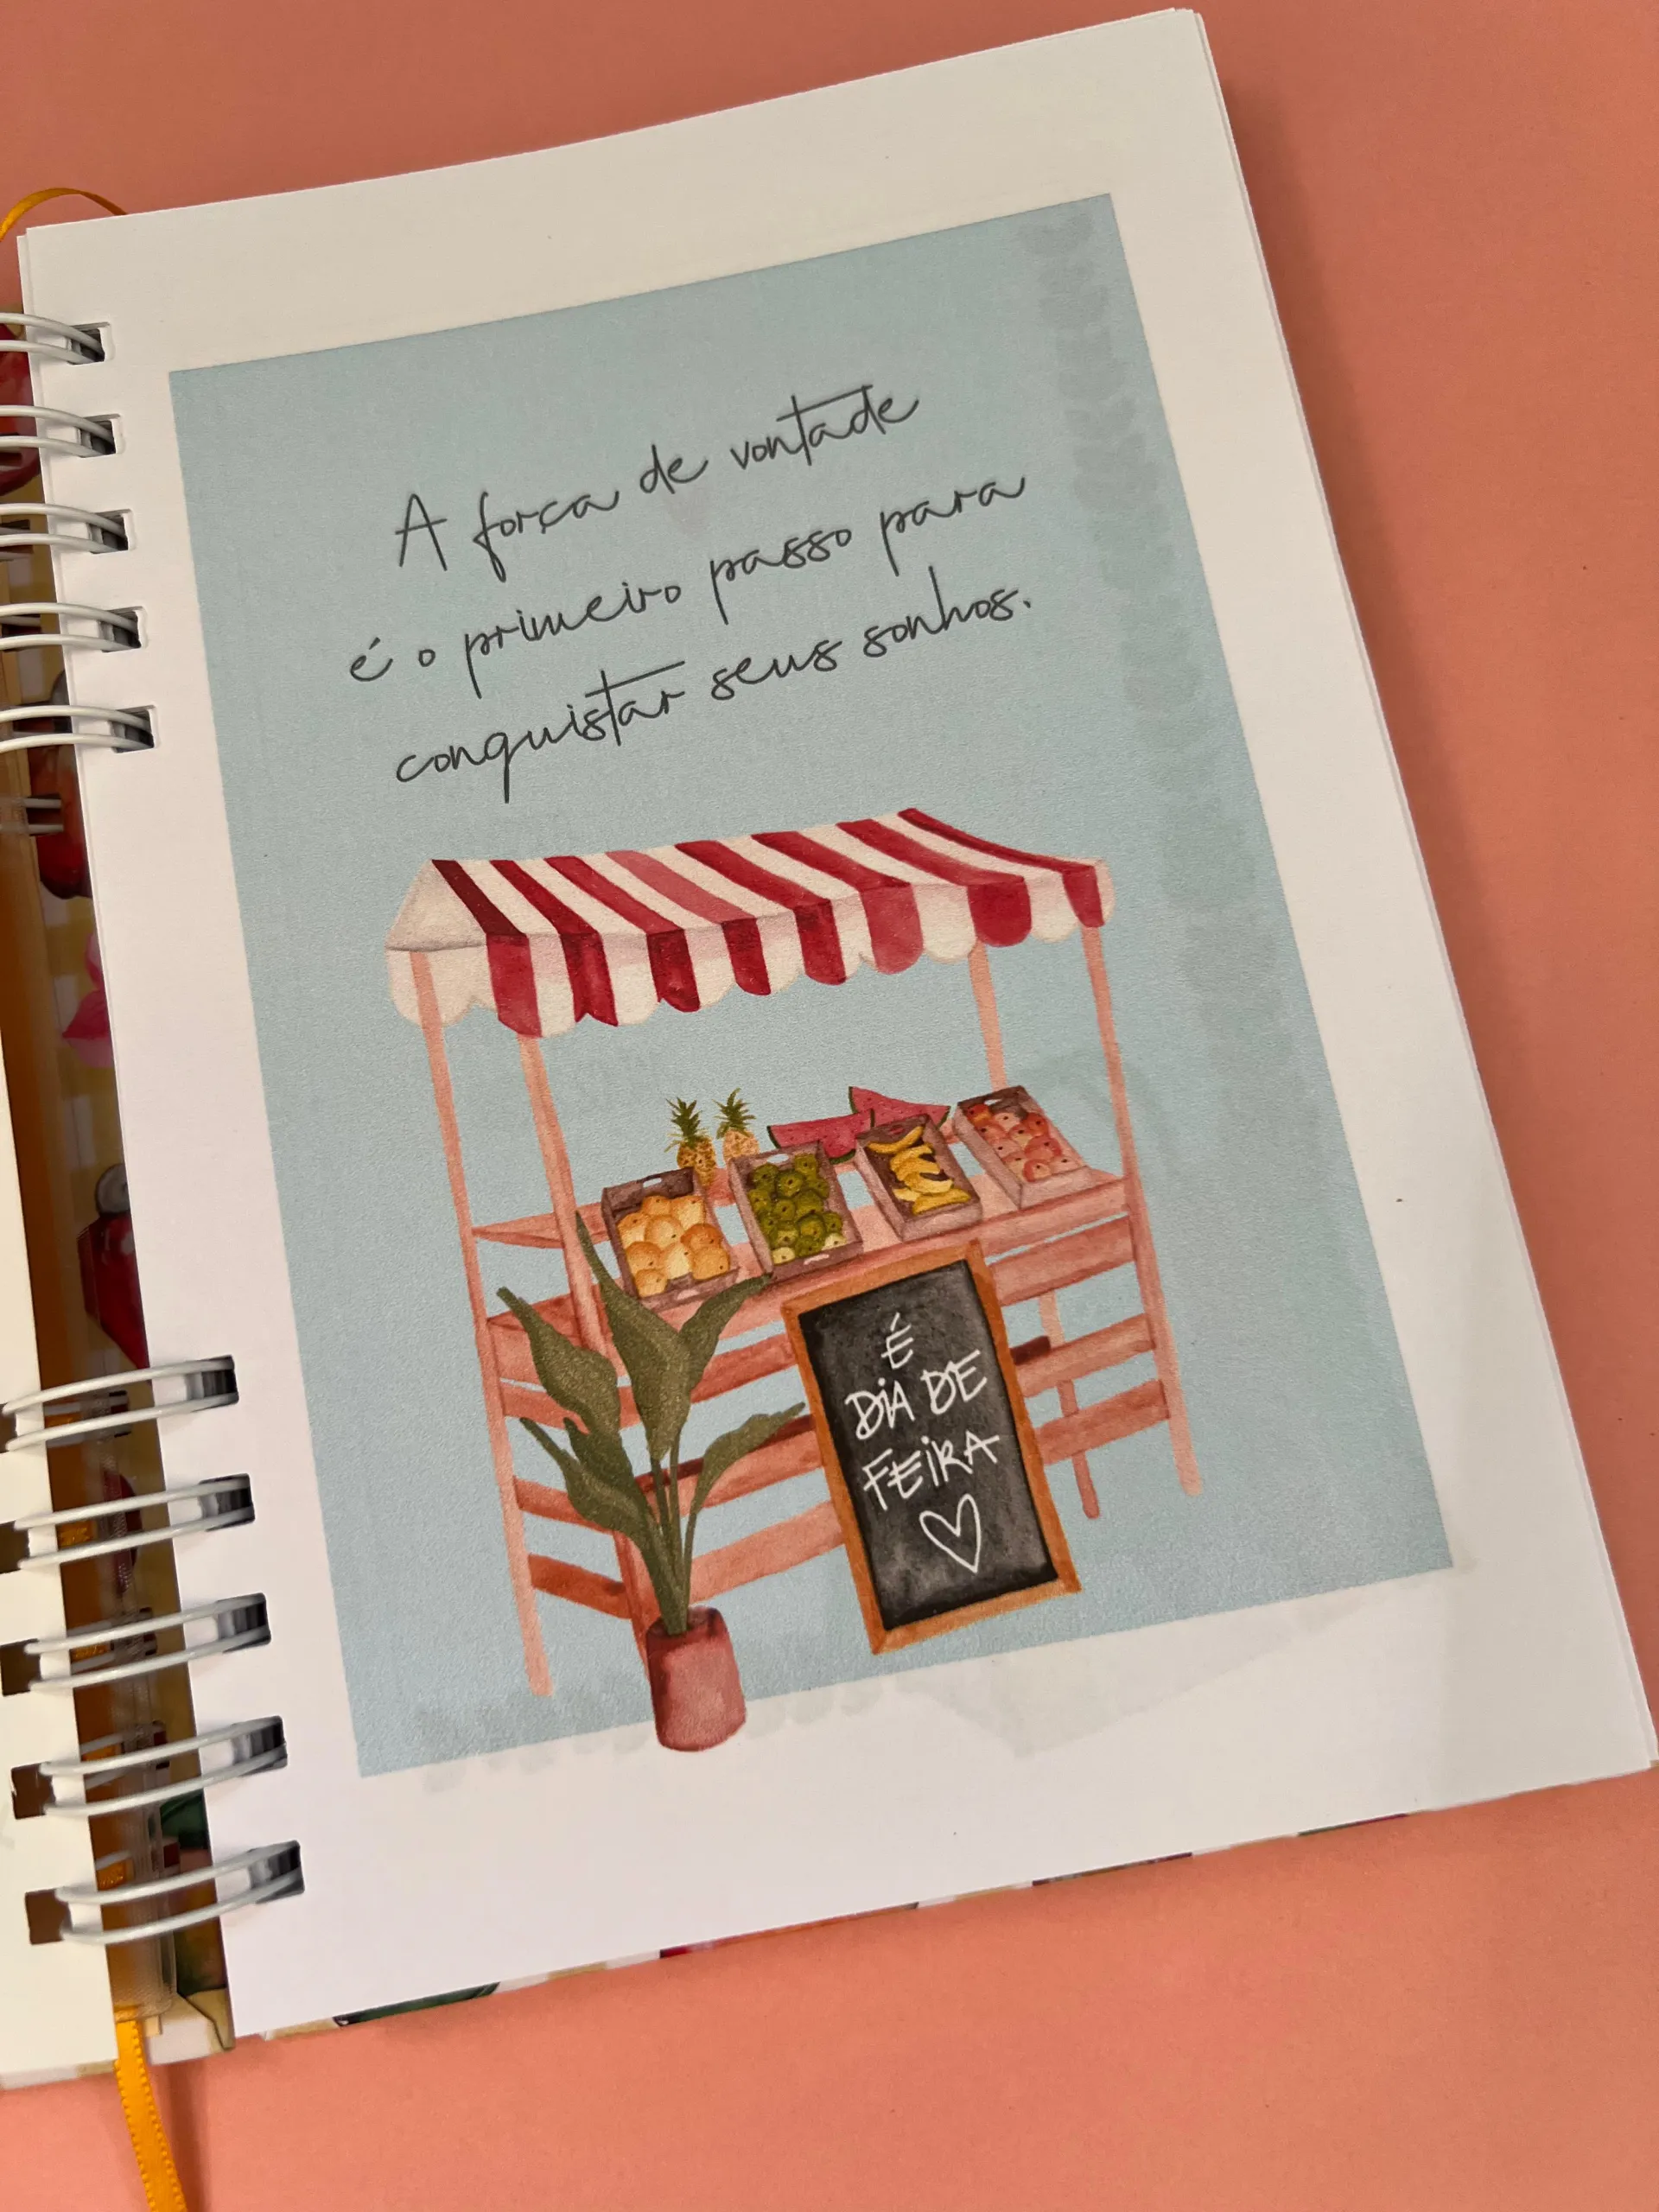 A força de vontade
é o primeiro passo para
conquistar seus sonhos.
É
DiA DE
FEiRA